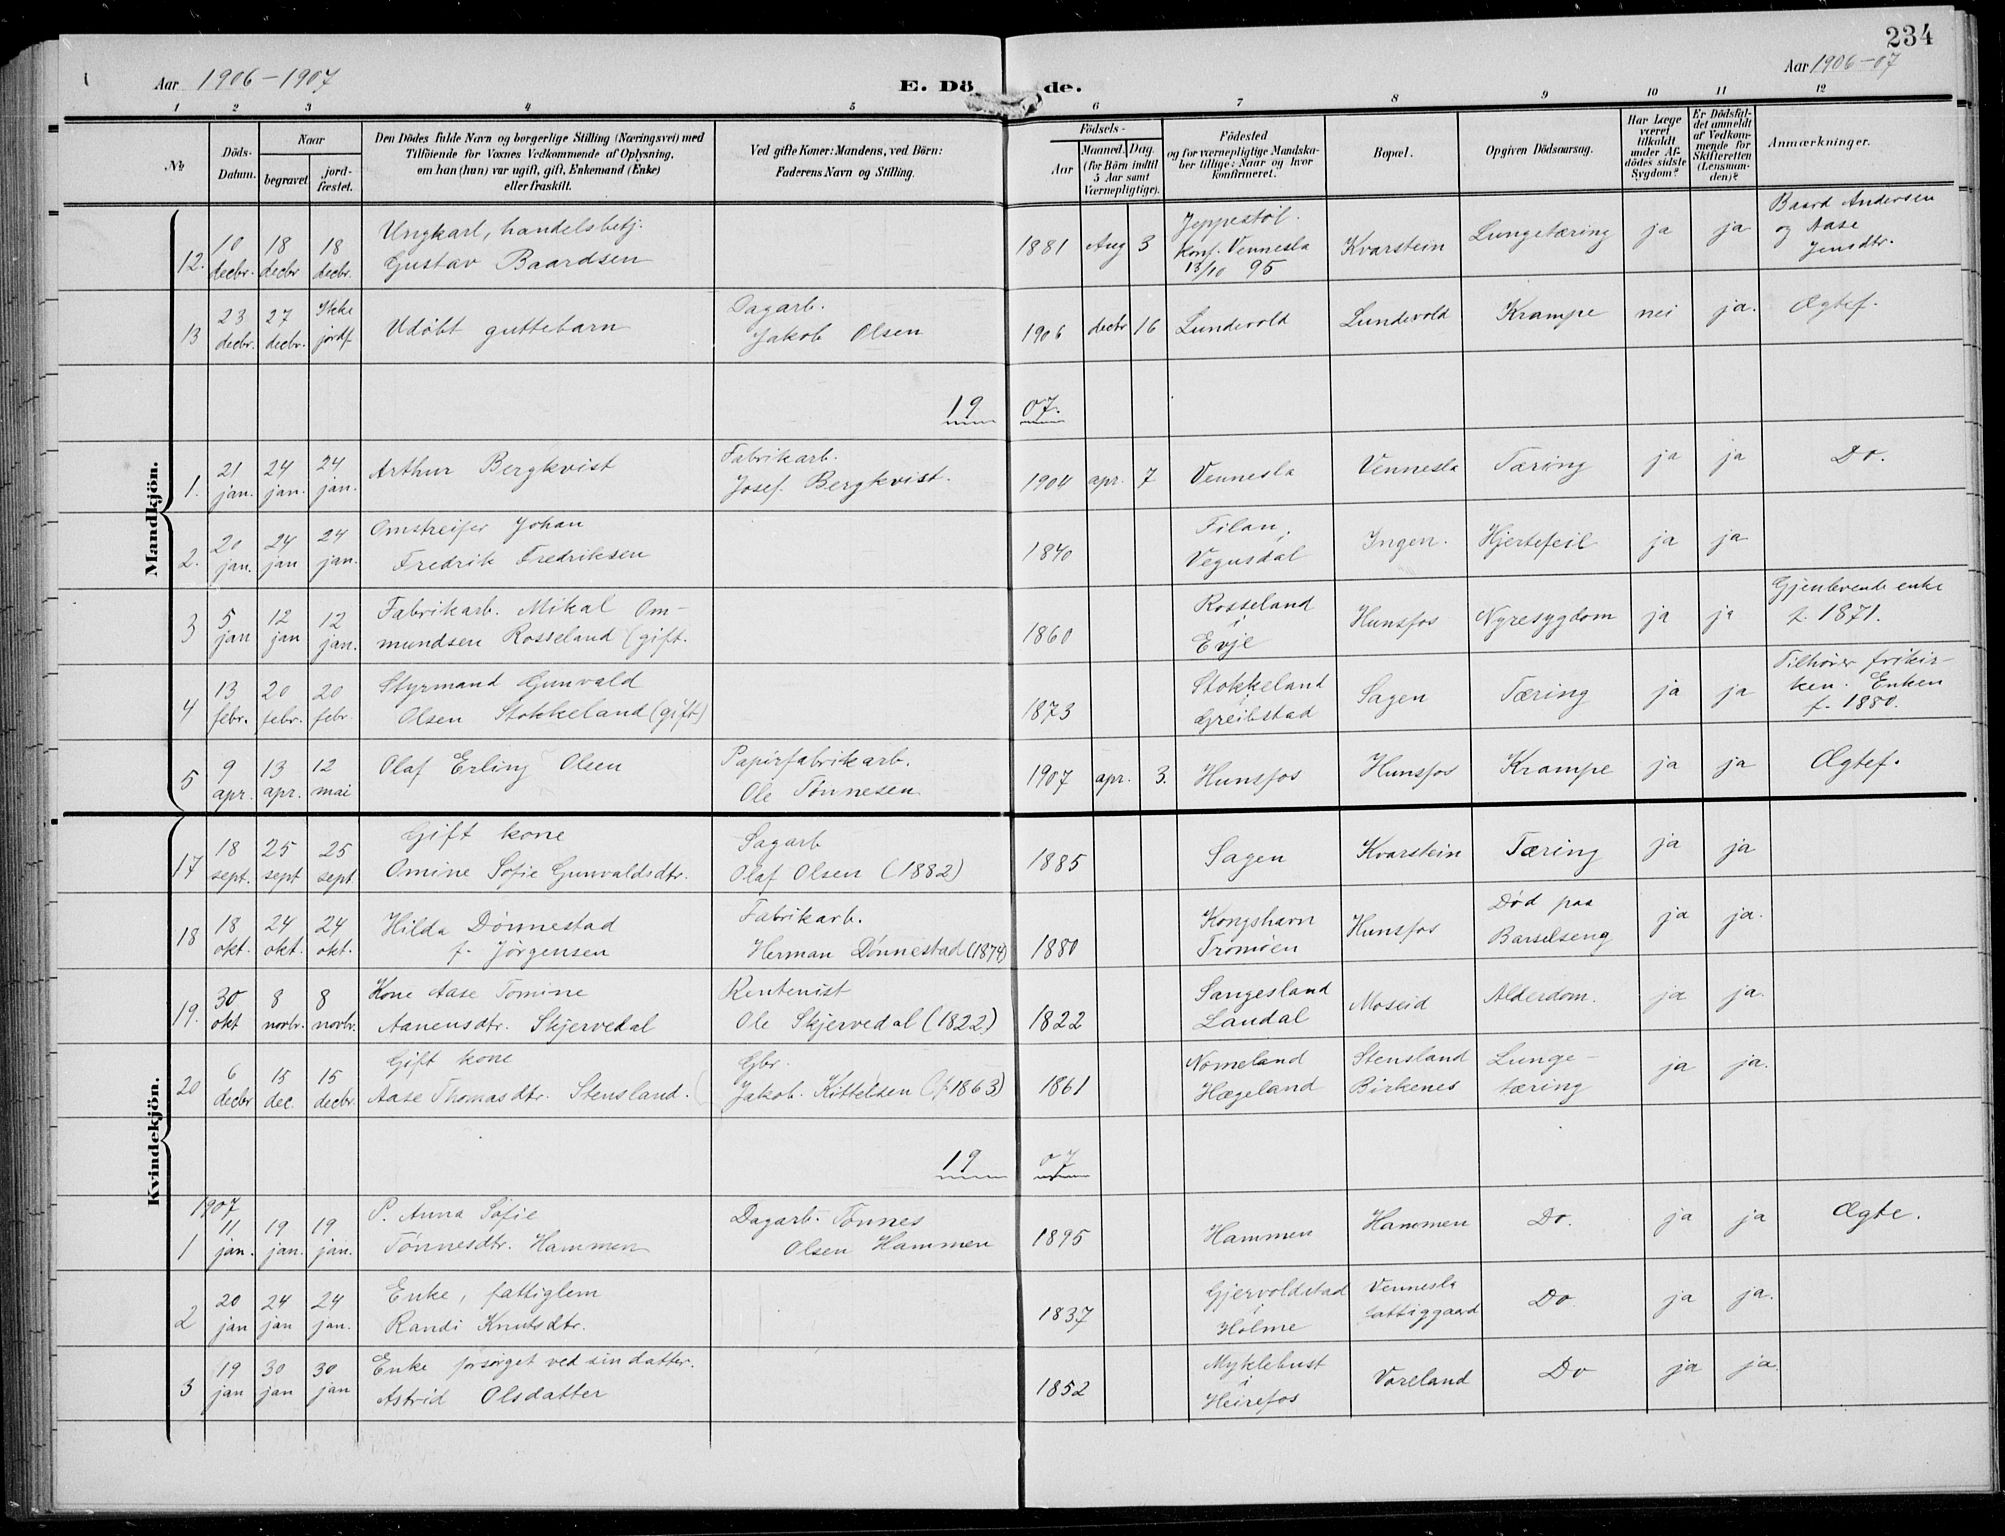 234
Aar 1906-1907
E. Dö de.
Aar 1906-07
1 2 3 4 5 6 7 8 9 10 11 12
No
Döds-Datum.
Naar
begravet
jord-fæstet.
Den Dödes fulde Navn og borgerlige Stilling (Næringsvei) med
Tilföiende for Voxnes Vedkommende af Oplysning,
om han (hun) var ugift, gift, Enkemand (Enke)
eller fraskilt.
Ved gifte Koner: Mandens, ved Börn:
Faderens Navn og Stilling.
Födsels-
Aar
Maaned. Dag.
(for Börn indtil
5 Aar samt
Værnepligtige).
Födested
og for værnepligtige Mandska-
ber tillige: Naar og hvor
konfirmeret.
Bopæl.
Opgiven Dödsaarsag.
Har Læge
været
tilkaldt
under Af-
dödes sidste
Sygdom?
Er Dödsfal-
det anmeldt
af Vedkom-
mende for
Skifteretten
(Lensman-
den)?
Anmærkninger.
Mandkjön.
12. 10 decbr. 18 decbr 18 decbr. Ungkarl, handelsbetj. Gustav Baardsen 1881 Aug 3 Jeppestøl. Konf. Vennesla 13/10 95 Kvarstein Lungetæring ja ja Baard Andersen og Aase Jensdtr.
13 23 decbr. 27 decbr. Ikke jordf. Udøbt guttebarn Dagarb. Jakob Olsen 1906 decbr 16 Lundevold Lundevold Krampe nei ja. Ægtef.
19 07.
1. 21 jan. 24 jan. 24 jan. Arthur Bergkvist Fabrikarb. Josef. Bergkvist. 1904 apr. 7 Vennesla Vennesla Tæring ja ja Do.
2. 20 jan. 24 jan 24 jan. Omstreifer Johan Fredrik Fredriksen 1840 Filan, Vegusdal Ingen. Hjertefeil ja ja
3 5 jan 12 jan 12 jan. Fabrikarb. Mikal Om- mundsen Rosseland (gift. 1860 Rosseland i Evje Hunsfos Nyresygdom ja ja Gjenlevende enke f. 1871.
4 13 febr. 20 febr. 20 febr. Styrmand Gunvald Olsen Stokkeland (gift) 1873 Stokkeland Greibstad Sagen Tæring ja ja Tilhører frikir- ken. Enken f. 1880.
5 9 apr. 13 apr. 12 mai Olaf Erling Olsen Papirfabrikarb. Ole Tønnesen 1907 apr. 3. Hunsfos Hunsfos Krampe ja ja Ægtef.
Kvindekjön.
17 18 sept. 25 sept 25 sept Gift kone Omine Sofie Gunvaldsdtr. Sagarb Olaf Olsen (1882) 1885 Sagen Kvarstein Tæring ja ja
18 18 okt. 24 okt. 24 okt. Hilda Dønnestad f. Jørgensen Fabrikarb. Herman Dønnestad (1874) 1880 Kongshavn Tromøen Hunsfos Død paa Barselseng ja ja.
19. 30 okt 8 novbr. 8 novbr. Kone Aase Tomine Aanensdtr. Skjervedal Rentenist Ole Skjervedal (1822) 1822 Sangesland Laudal Moseid Alderdom. ja ja.
20 6 decbr 15 dec. 15 decbr. Gift kone Aase Thomasdtr. Stensland. Gbr. Jakob. Kittelsen (f. 1863) 1861 Nomeland Hægeland Stensland Birkenes Lunge- tæring ja ja.
19 07
1907
1 11 jan. 19 jan. 19 jan. P. Anna Sofie Tønnesdtr. Hammen Dagarb. Tønnes Olsen Hammen 1895 Hammen Hammen Do. ja ja Ægte.
2 20 jan 24 jan 24 jan. Enke, fattiglem Randi Knutsdtr. 1837 Gjervoldstad i Holme Vennesla fattiggaard Do ja ja.
3 19 jan 30 jan 30 jan Enke forsørget ved sin datter. Astrid Olsdatter 1852 Myklebust i Heirefos Voreland Do ja ja